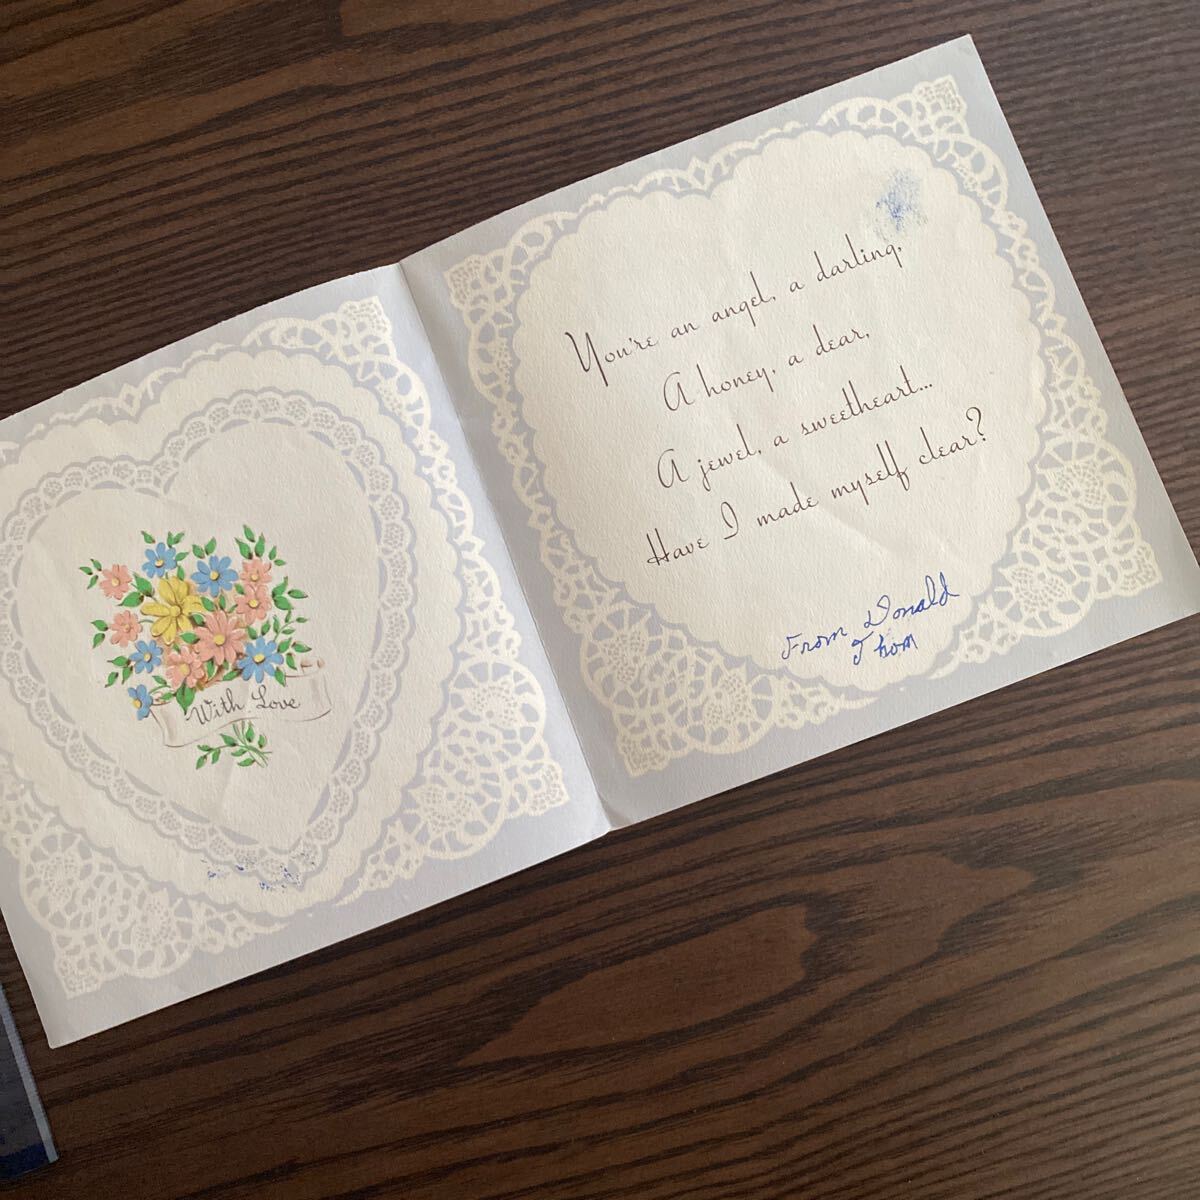 With Love
You're an angel, a darling,
A honey, a dear,
A jewel, a sweetheart...
Have I made myself clear?
From Donald
Thom